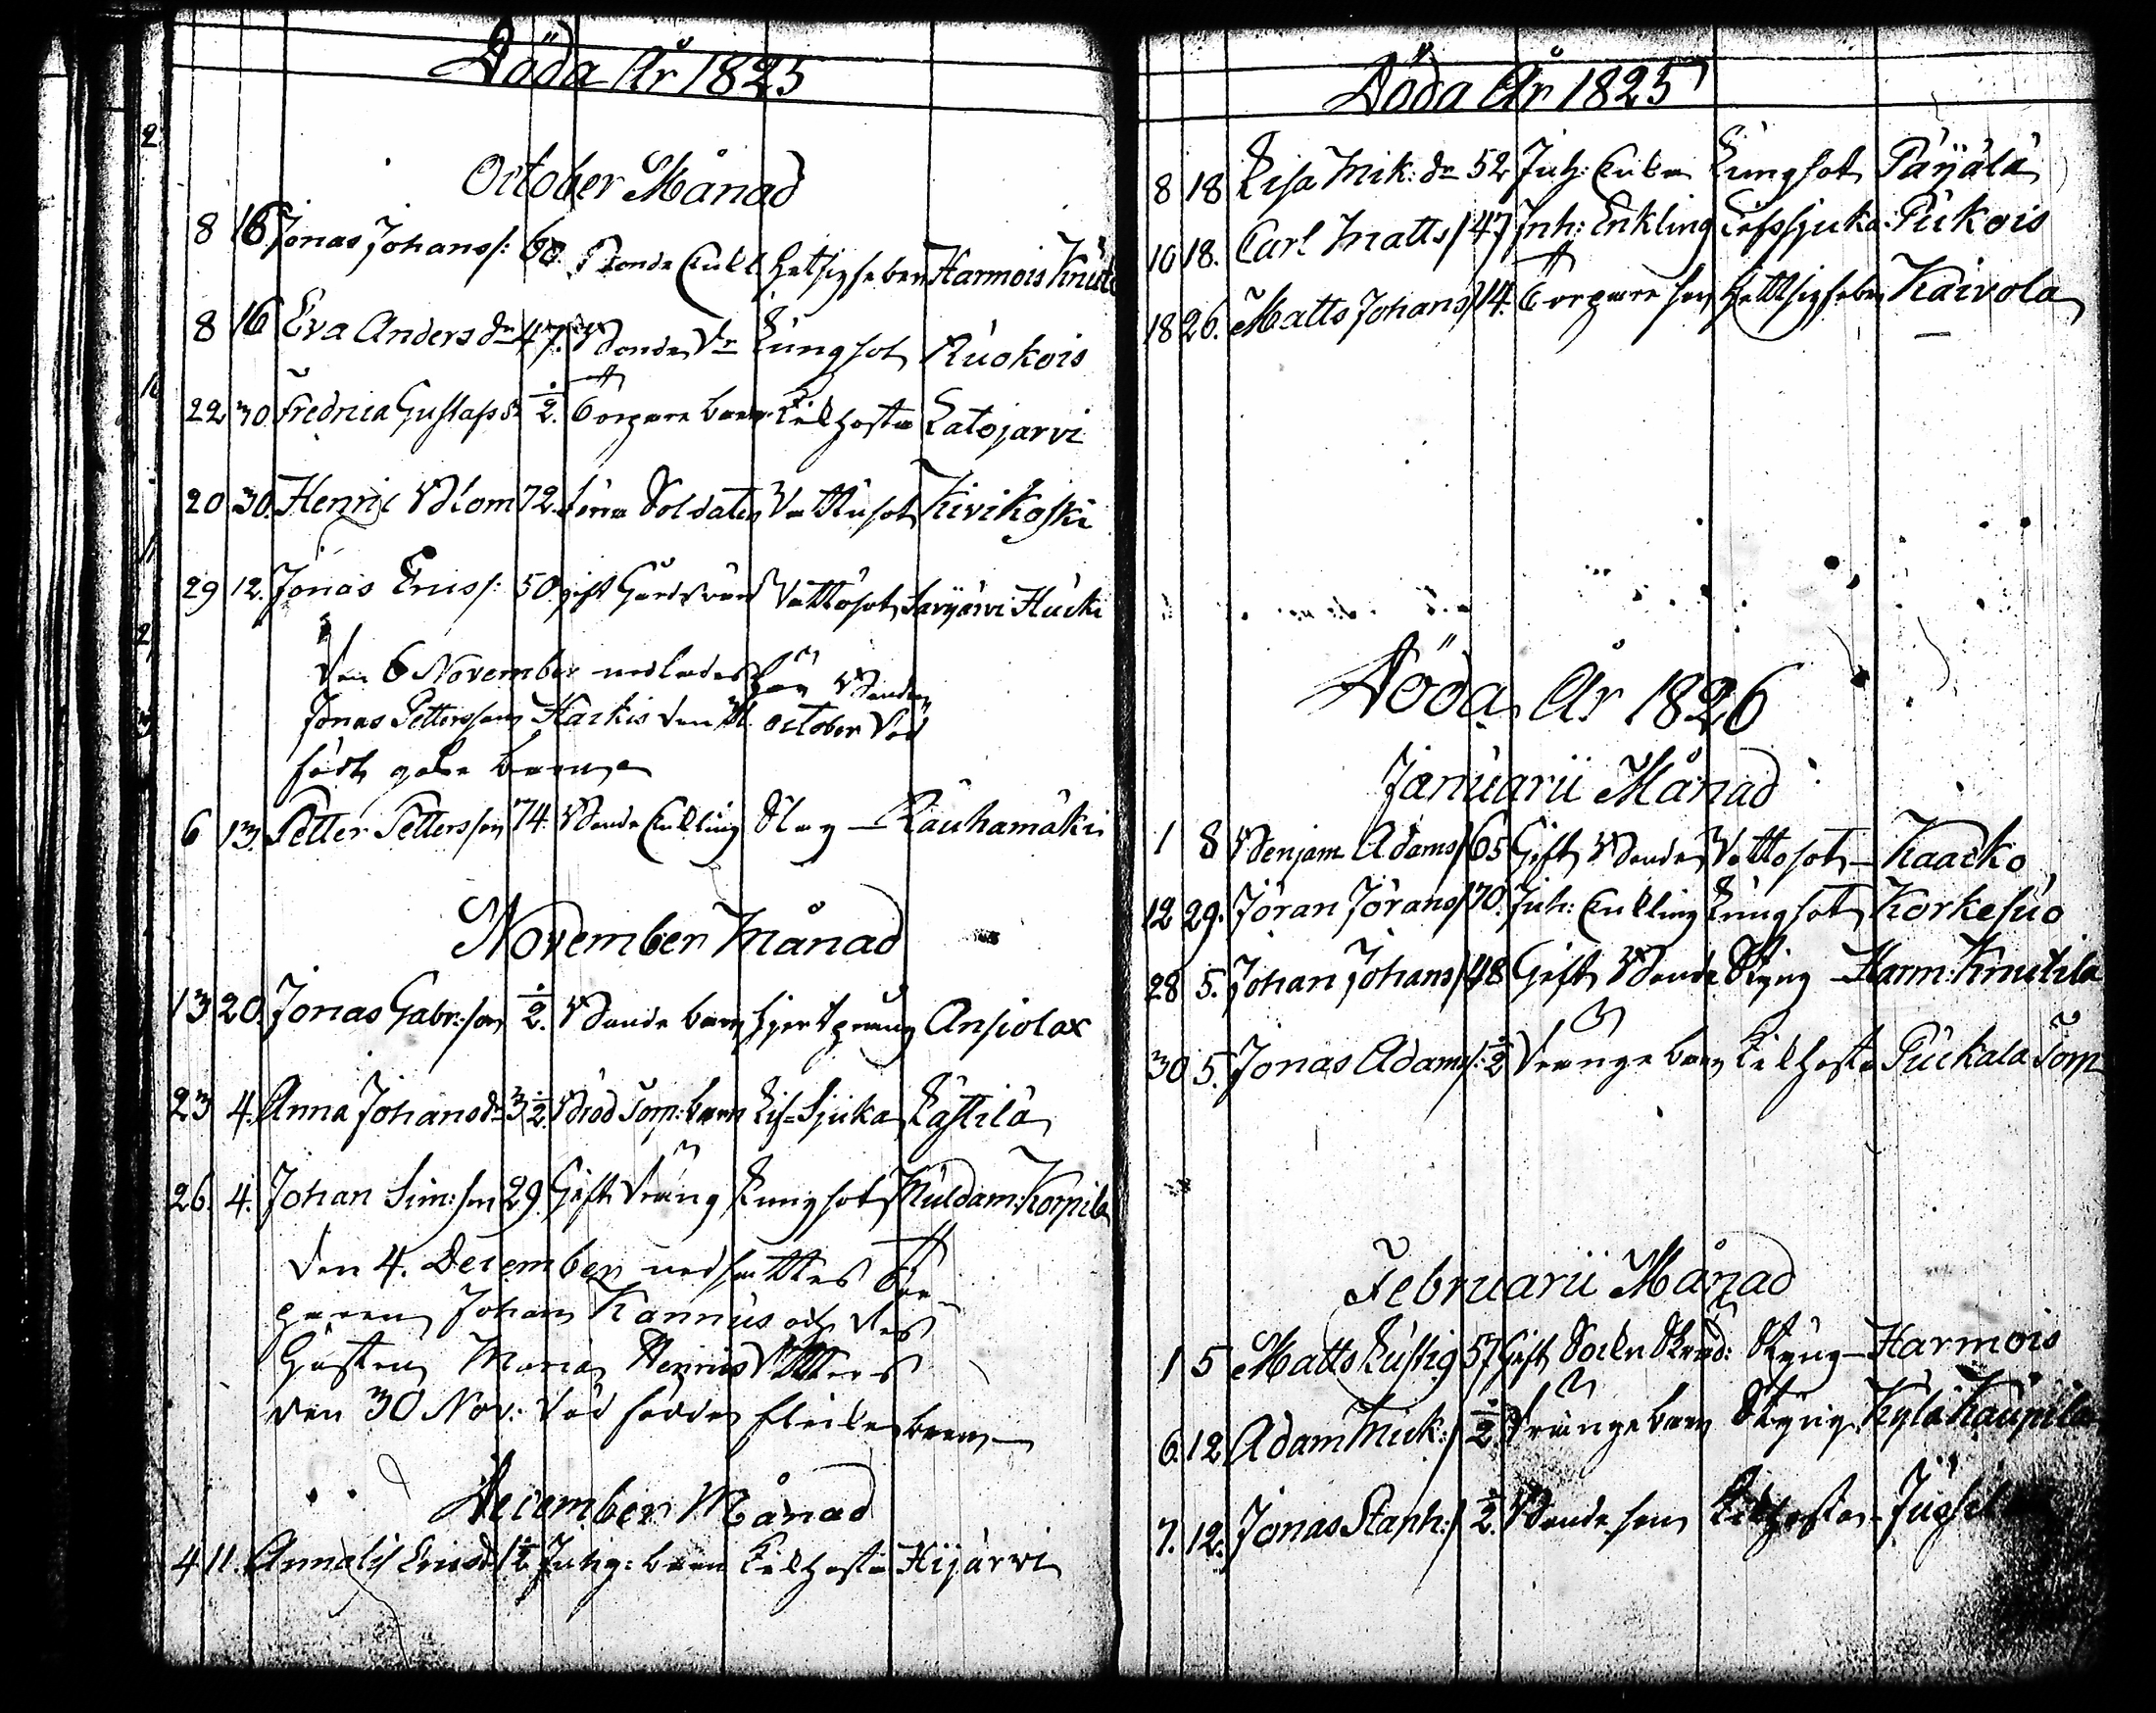 Döda År 1825
October Månad
8 16 Jonas Johans/: 60. Bonde Enkl. Hetsig feber Harmois Knut
8 16 Eva Anders dr 47. Bonde Dr Lungsot Ruokois
22 30. Fredrica Gustafs dr ½. Torpare barn Kikhosta Latojarvi
20 30. Henric Blom 72. Soldaten Vattusot Kivikoski
29 12. Jonas Erics/: 50. gift Vattusot Saryärvi Hucki
Den 6 November nedlades Bonden
Jonas Pettersson Harkis den October död
födt barn
6 13. Petter Petterson 74. Bonde Enkling Slag – Rauhamäki
November Månad
13 20. Jonas Gabr:son ½. Bonde barn Ansiolax
23 4. Anna Johans dr 3½. barn Lif-Sjuka Rastila
26. 4. Johan Sim:son 29. Gift Dräng Lungsot Muldam: Korpila
den 4. December nedsattes Tor-
paren Johan Kannus och des
Hustru Maria Henrics Dotters
den 30 Nov: död födda flicke barn
December Månad
4 11. Annalis Ericsd ½ Inhy: barn Kikhosta Hijärvi
Döda År 1825
8 18 Lisa Mik: dr 52 Inh: Enka Lungsot Päyälä
10 18. Carl Matts/ 47 Inh: Enkling Lifssjuka: Pukois
18 26. Matts Johans/ 14. Torpare son Hettsig feber Kaivola
Döda År 1826
Januarii Månad
1 8 Benjam Adams/ 65 Gift Bonde Vattosot – Kaacko
12 29. Jöran Jörans/ 70. Inh: Enkling Lungsot Korkesuo
28 5. Johan Johans/ 48 Gift Bonde Styng – Harm: Knutila
30 5. Jonas Adams/: ½ Dränge barn Kikhosta Puckala Torp
Februarii Månad
1 5 Matts Lustig 57 Gift Sockn Skräd: Styng – Harmois
6. 12 Adam Mick:/ ½ Dränge barn Styng Kylä Kaupila
7. 12. Jonas Staph:/ ½. Bonde son Kikhosta – Jussila